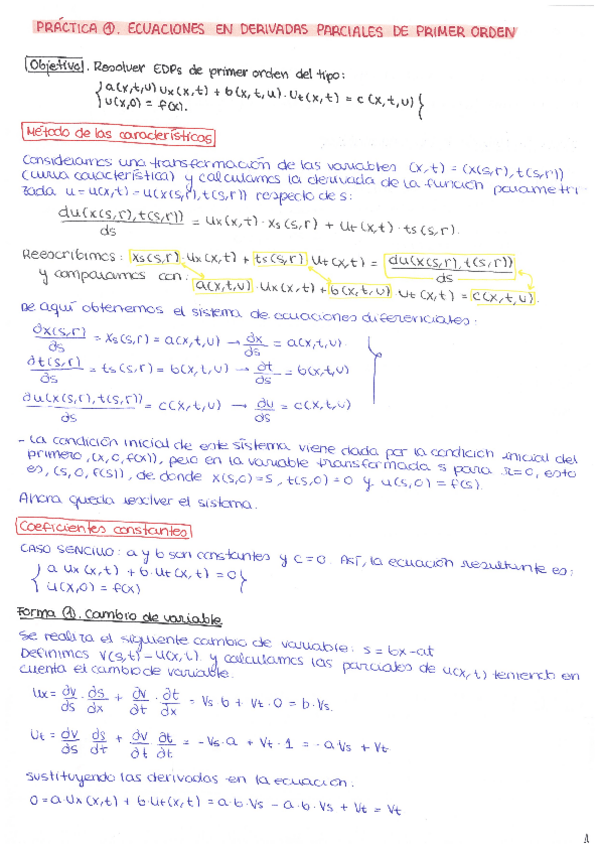 PRÁCTICA ①. ECUACIONES EN DERIVADAS PARCIALES DE PRIMER ORDEN
Objetivo. Resolver EDPs de primer orden del tipo:
{ a(x,t,u) ux(x,t) + b(x,t,u)·ut(x,t) = c(x,t,u) }
{ u(x,0) = f(x). }
Método de las características
Consideramos una transformación de las variables (x,t) = (x(s,r),t(s,r))
(curva característica) y calculamos la derivada de la función parametri
zada u=u(x,t)=u(x(s,r),t(s,r)) respecto de s:
du(x(s,r),t(s,r))/ds = ux(x,t)·xs(s,r) + ut(x,t)·ts(s,r).
Reescribimos: xs(s,r)·ux(x,t) + ts(s,r) ut(x,t) = du(x(s,r),t(s,r))/ds
y comparamos con: a(x,t,u)·ux(x,t) + b(x,t,u)·ut(x,t) = c(x,t,u).
De aquí obtenemos el sistema de ecuaciones diferenciales:
∂x(s,r)/∂s = xs(s,r) = a(x,t,u) → ∂x/∂s = a(x,t,u).
∂t(s,r)/∂s = ts(s,r) = b(x,t,u) → ∂t/∂s = b(x,t,u)
∂u(x(s,r),t(s,r))/∂s = c(x,t,u) → ∂u/∂s = c(x,t,u)
- La condición inicial de este sistema viene dada por la condición inicial del
primero, (x,0,f(x)), pero en la variable transformada s para r=0, esto
es, (s,0,f(s)), de donde x(s,0)=s, t(s,0)=0 y u(s,0)=f(s).
Ahora queda resolver el sistema.
Coeficientes constantes
CASO SENCILLO: a y b son constantes y c=0. Así, la ecuación resultante es:
{ a ux(x,t) + b·ut(x,t) = 0 }
{ u(x,0) = f(x) }
Forma ①. Cambio de variable
Se realiza el siguiente cambio de variable: s = bx-at
Definimos v(s,t)=u(x,t) y calculamos las parciales de u(x,t) teniendo en
cuenta el cambio de variable.
ux = ∂v/∂s · ∂s/∂x + ∂v/∂t · ∂t/∂x = vs b + vt·0 = b·vs.
ut = ∂v/∂s ∂s/∂t + ∂v/∂t ∂t/∂t = -vs·a + vt·1 = -a vs + vt
sustituyendo las derivadas en la ecuación:
0 = a·ux(x,t) + b·ut(x,t) = a·b·vs - a·b·vs + vt = vt
1